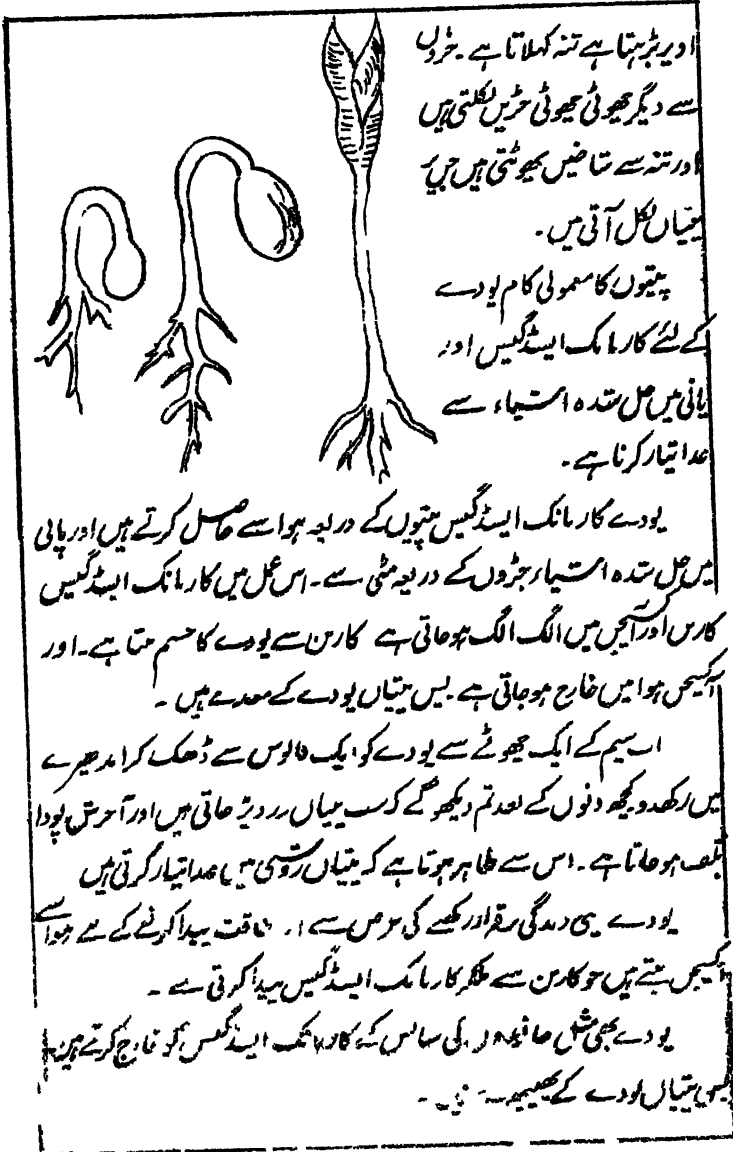 اوپر بڑہتا ہے تنہ کہلاتا ہے ۔ جڑوں
سے دیگر چھوٹی چھوٹی جڑیں نکلتی ہیں
اور تنہ سے شاخیں پھوٹتی ہیں جن پر
پتیاں نکل آتی ہیں ۔
پتیوں کا معمولی کام پودے
کے لئے کاربانک ایسڈ گیس اور
پانی میں حل شدہ اشیاء سے
غذا تیار کرنا ہے ۔
پودے کاربانک ایسڈ گیس پتیوں کے ذریعہ ہوا سے حاصل کرتے ہیں اور پانی
میں حل شدہ اشیاء جڑوں کے ذریعہ مٹی سے ۔ اس عمل میں کاربانک ایسڈ گیس
کاربن اور آکسیجن میں الگ الگ ہو جاتی ہے کاربن سے پودے کا جسم بنتا ہے ۔ اور
آکسیجن ہوا میں خارج ہو جاتی ہے پس پتیاں پودے کے معدے ہیں ۔
اب سیم کے ایک چھوٹے سے پودے کو ایک فانوس سے ڈھک کر اندھیرے
میں رکھدو کچھ دنوں کے بعد تم دیکھو گے کہ سب پتیاں زرد پڑ جاتی ہیں اور آخرش پودا
تلف ہو جاتا ہے ۔ اس سے ظاہر ہوتا ہے کہ پتیاں روشنی میں غذا تیار کرتی ہیں
پودے اپنی زندگی برقرار رکھنے کی غرض سے اور طاقت پیدا کرنے کے لئے ہوا سے
آکسیجن لیتے ہیں جو کاربن سے ملکر کاربانک ایسڈ گیس پیدا کرتی ہے ۔
پودے بھی مثل جانوروں کی سانس کے کاربانک ایسڈ گیس کو خارج کرتے ہیں
پس پتیاں پودے کے پھیپھڑے ہیں ۔